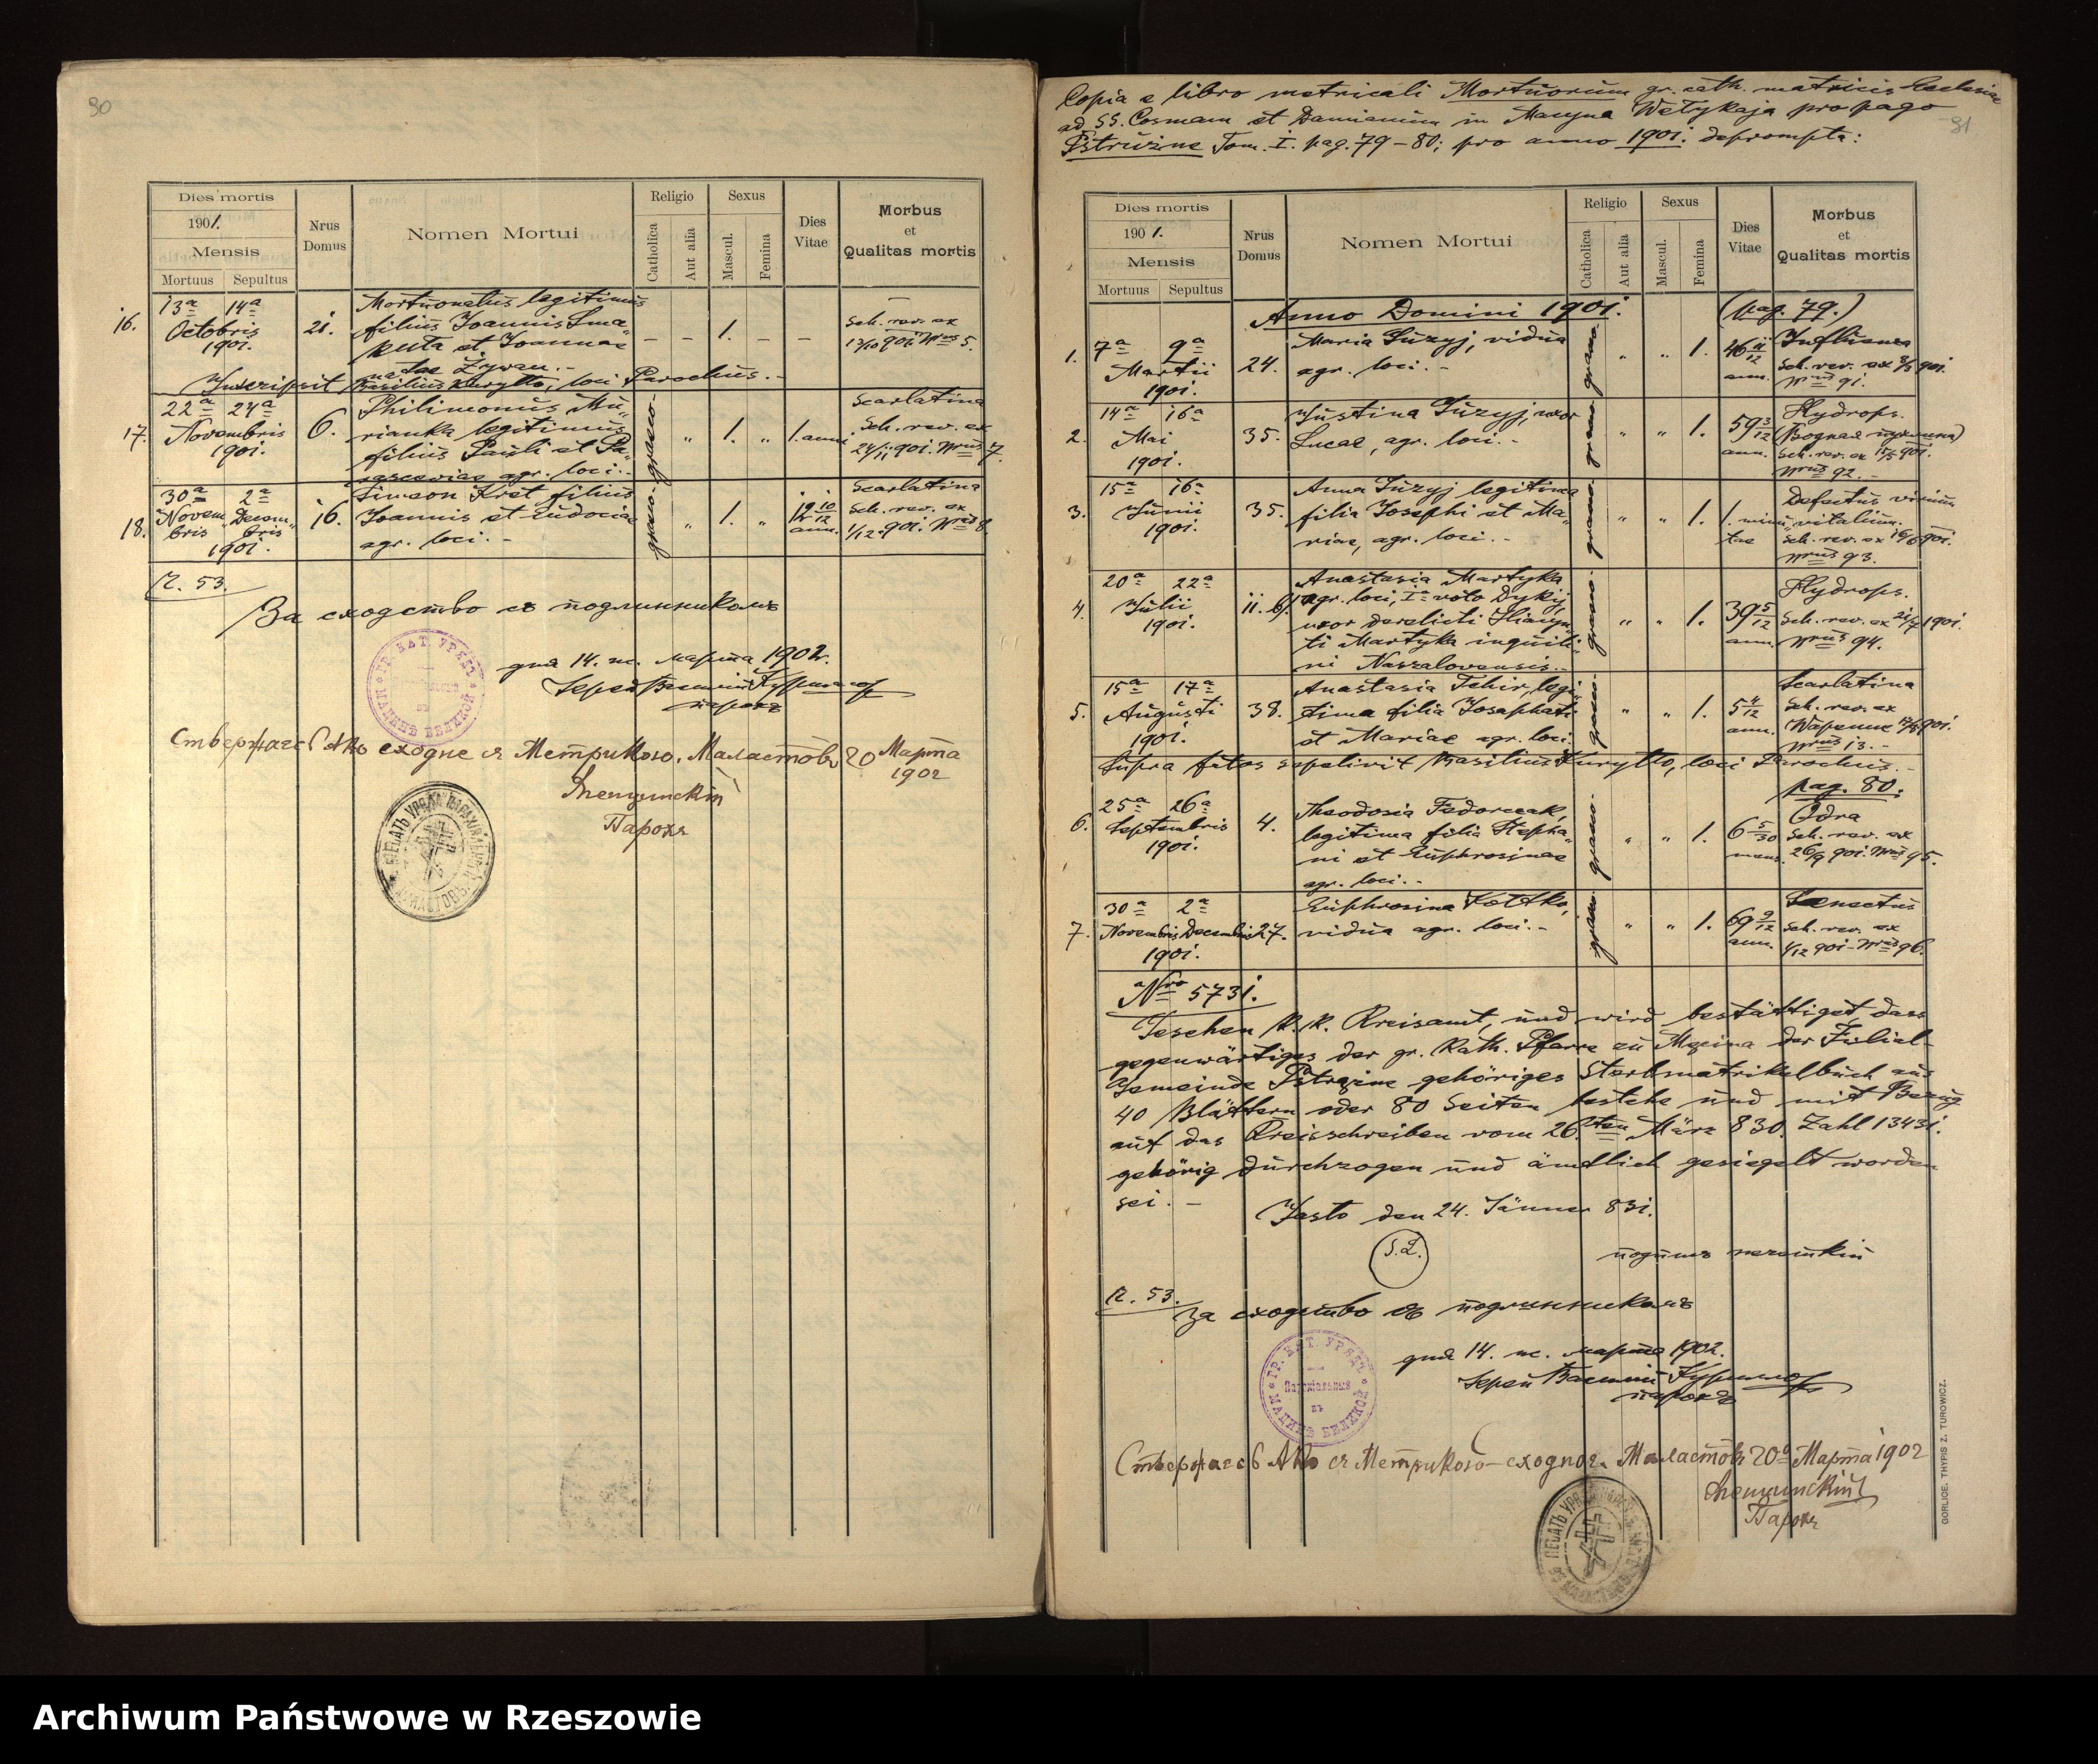 90
Dies mortis
1901.
Mensis
Mortuus Sepultus
Nrus
Domus
Nomen Mortui
Religio
Catholica
Aut alia
Sexus
Mascul.
Femina
Dies
Vitae
Morbus
et
Qualitas mortis
16. 13ª 14ª
Octobris
1901.
21.
Mortuonatus legitimus
filius Joannis
et Joannae
natae Żywan.-
– – 1. – –
Sch. rev. ex
13/10 901 Nrus 5.
Inscripsit Basilius Kuryłło, loci Parochus.-
17. 22ª 24ª
Novembris
1901.
6.
Philimonus Mu-
rianka legitimus
filius Pauli et Pa-
agr. loci.-
graeco-
„ 1. „ 1. anni
Scarlatina
Sch. rev. ex
24/11 901. Nrus 7.
18. 30ª 2ª
Novem- Decem-
bris bris
1901.
16.
Simeon Kret filius
Joannis et Eudociae
agr. loci.-
graeco-
„ 1. „
ann.
Scarlatina
Sch. rev. ex
1/12 901. Nrus 8.
Ч. 53.
За сходство съ подлинникомъ
дня 14. н. марта 1902.
парохъ
ГР. КАТ. УРЯДЪ МАЦИНѢ ВЕЛИКОЙ
сходне съ Метрикою. Маластôвъ 20 Марта
1902
Парохъ
91
Copia e libro metricali Mortuorum gr. cath. matricis Ecclesiae
ad SS. Cosmam et Damianum in Macyna Wełykaja pro pago
Pstrużne Tom. I. pag. 79 – 80; pro anno 1901. deprompta:
Dies mortis
1901.
Mensis
Mortuus Sepultus
Nrus
Domus
Nomen Mortui
Religio
Catholica
Aut alia
Sexus
Mascul.
Femina
Dies
Vitae
Morbus
et
Qualitas mortis
Anno Domini 1901. (pag. 79.)
1. 7ª 9ª
Martii
1901.
24.
Maria Guzyj, vidua
agr. loci.-
graeco-
„ „ 1.
46 11/12
ann.
Influenza
Sch. rev. ex 8/3 901.
Nrus 91.
2. 14ª 16ª
Mai
1901.
35.
Justina Guzyj, uxor
Lucae, agr. loci.-
graeco-
„ „ 1.
59 3/12
ann.
Hydrops.
(Водная пухлина)
Sch. rev. ex 15/5 901.
Nrus 92.-
3. 15ª 16ª
Junii
1901.
35.
Anna Guzyj legitima
filia Josephi et Ma-
riae, agr. loci.-
graeco-
„ „ 1.
1. minu-
tae
Defectus virium
vitalium.
Sch. rev. ex 16/6 901.
Nrus 93.
4. 20ª 22ª
Julii
1901.
11.
Anastasia Martyka
agr. loci, Iª voto Dykij,
uxor derelicti
ti Martyka inquili-
ni
graeco-
„ „ 1.
39 5/12
ann.
Hydrops.
Sch. rev. ex 21/7 1901.
Nrus 94.
5. 15ª 17ª
Augusti
1901.
38.
Anastasia Fehir, legi-
tima filia Josaphati
et Mariae agr. loci.
graeco-
„ „ 1.
5 4/12
ann.
Scarlatina
Sch. rev. ex
Wapenne 17/8 901.
Nrus 13.-
Supra fatos sepelivit Basilius Kuryłło, loci Parochus.-
pag. 80.
6. 25ª 26ª
Septembris
1901.
4.
Theodosia Fedorczak,
legitima filia Stepha-
ni et Euphrosinae
agr. loci.-
graeco-
„ „ 1.
6 5/30
mens.
Odra
Sch. rev. ex
26/9 901. Nrus 95.
7. 30ª 2ª
Novembris Decembris
1901.
27.
Euphrosina Kottko,
vidua agr. loci.-
graeco-
„ „ 1.
69 9/12
ann.
Senectus
Sch. rev. ex
1/12 901- Nrus 96.
Nro 5731.
k. k. Kreisamt, und wird bestättiget, dass
gegenwärtiges der gr. Kath. Pfarre zu Męcina der Filial-
Gemeinde Pstrążne gehöriges Sterbmatrikelbuch aus
40 Blättern oder 80 Seiten bestehe und mit Bezug
auf das Kreisschreiben vom 26ten März 830. Zahl 13431.
gehörig durchzogen und ämtlich gesiegelt worden
sei.-
Jasło den 24. Jänner 831.
S. L.
подпись нечиткій
Ч. 53.
За сходство съ подлинникомъ
дня 14. н. марта 1902.
парохъ
ГР. КАТ. УРЯДЪ Парохіальный въ МАЦИНѢ ВЕЛИКОЙ
съ Метрикою сходное. Маластôвъ 20го Марта 1902
Парохъ
GORLICE. THYPIS Z. TUROWICZ.
Archiwum Państwowe w Rzeszowie